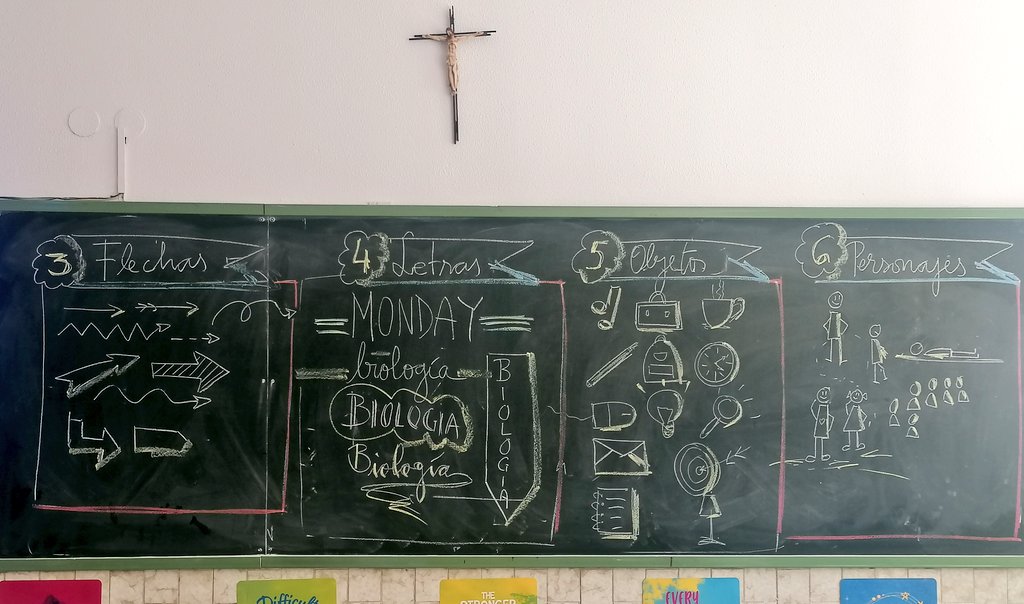 3 Flechas
4 Letras
MONDAY
biología
BIOLOGIA
Biología
BIOLOGÍA
5 Objetos
6 Personajes
Difficult
THE
STRONGER
EVERY